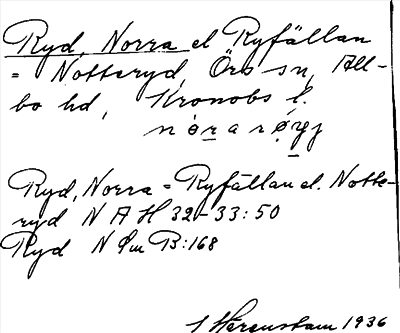 Ryd, Norra el Ryfällan
= Notteryd, Örs sn, All-
bo hd, Kronobs l.
Ryd, Norra = Ryfällan el. Notte-
ryd N A H 32-33:50
Ryd N Øm B:168
1936